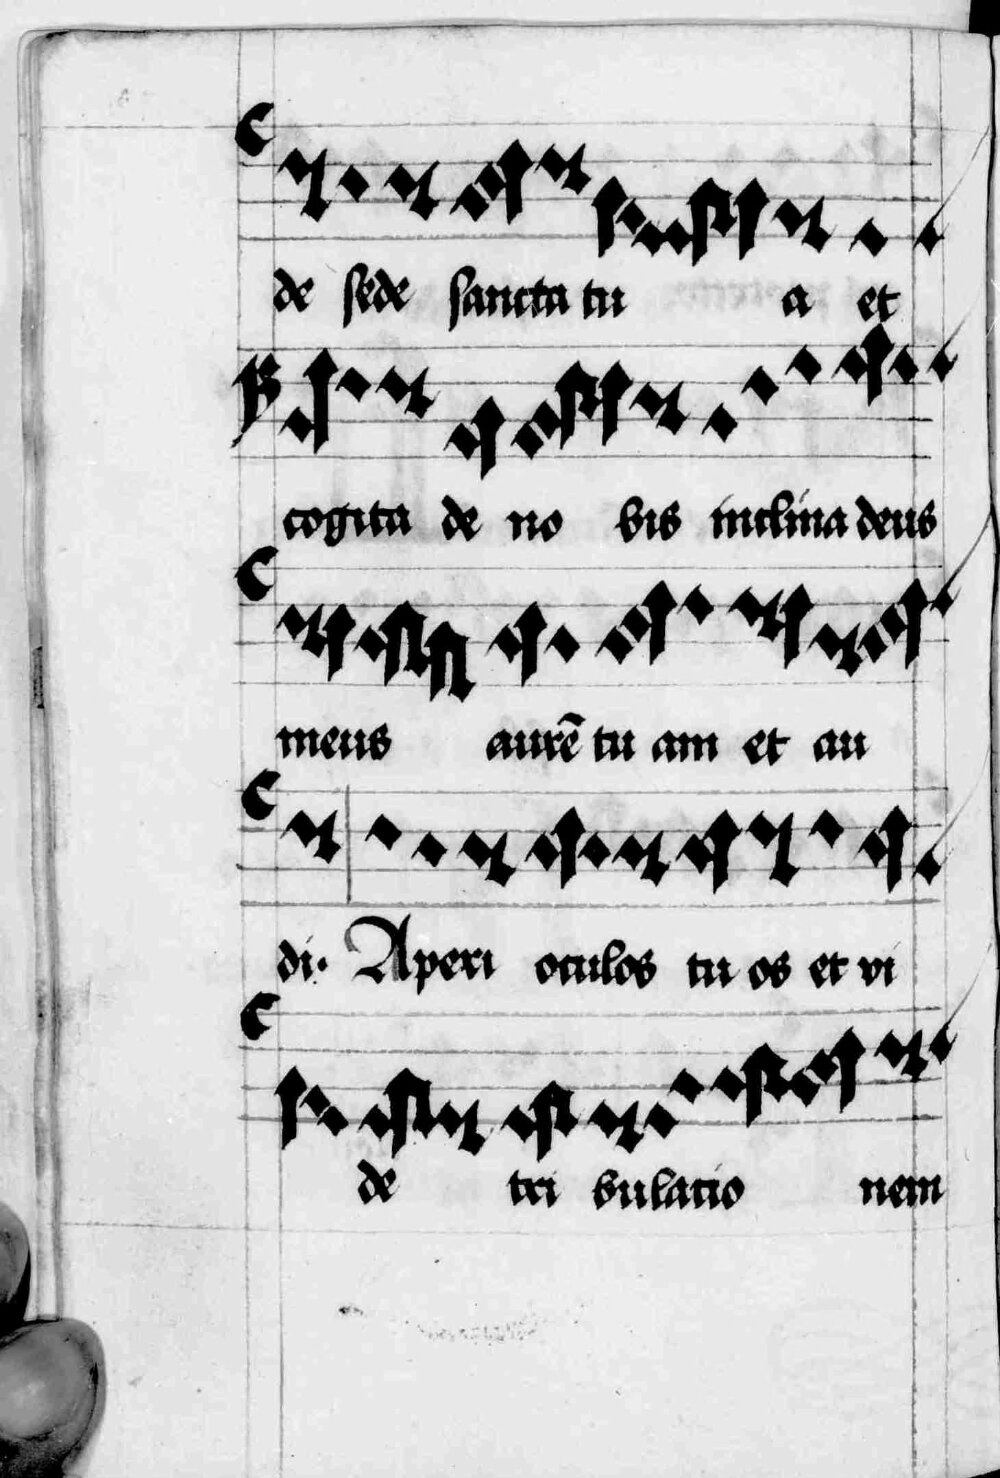 de sede sancta tu a et
cogita de no bis inclina deus
meus aurē tu am et au
di. Aperi oculos tu os et vi
de tri bulatio nem